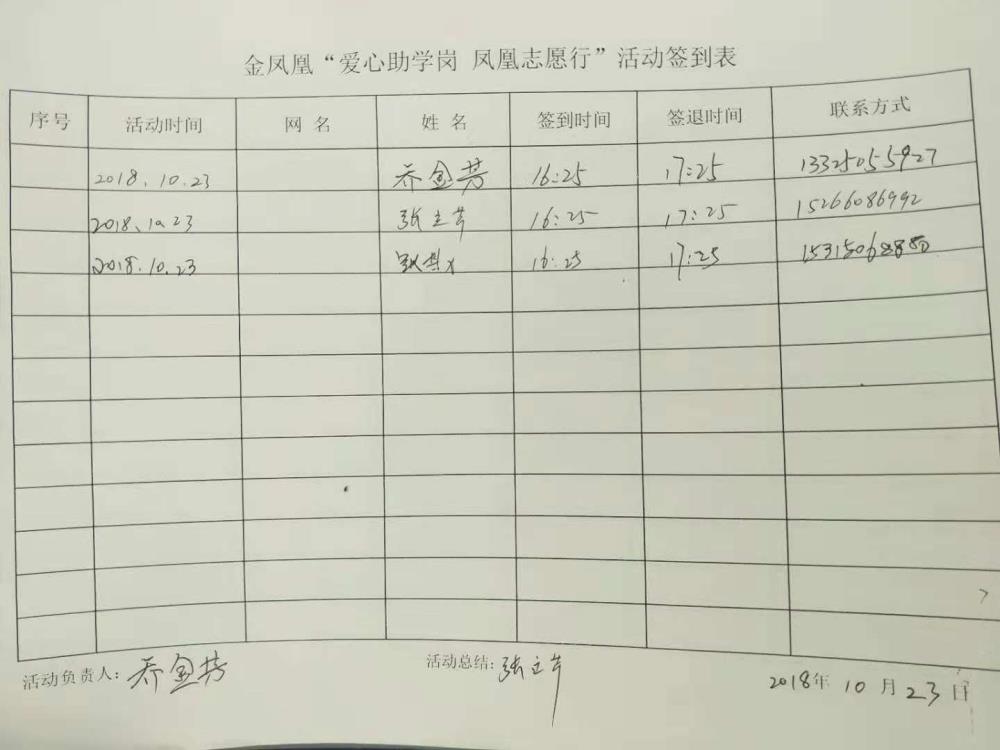 金凤凰“爱心助学岗 凤凰志愿行”活动签到表
序号 活动时间 网 名 姓 名 签到时间 签退时间 联系方式
2018.10.23 乔金芳 16:25 17:25 13325055927
2018.10.23 张立芹 16:25 17:25 15266086992
2018.10.23 16:25 17:25
活动负责人：乔金芳 活动总结：张立芹 2018年 10 月 23 日